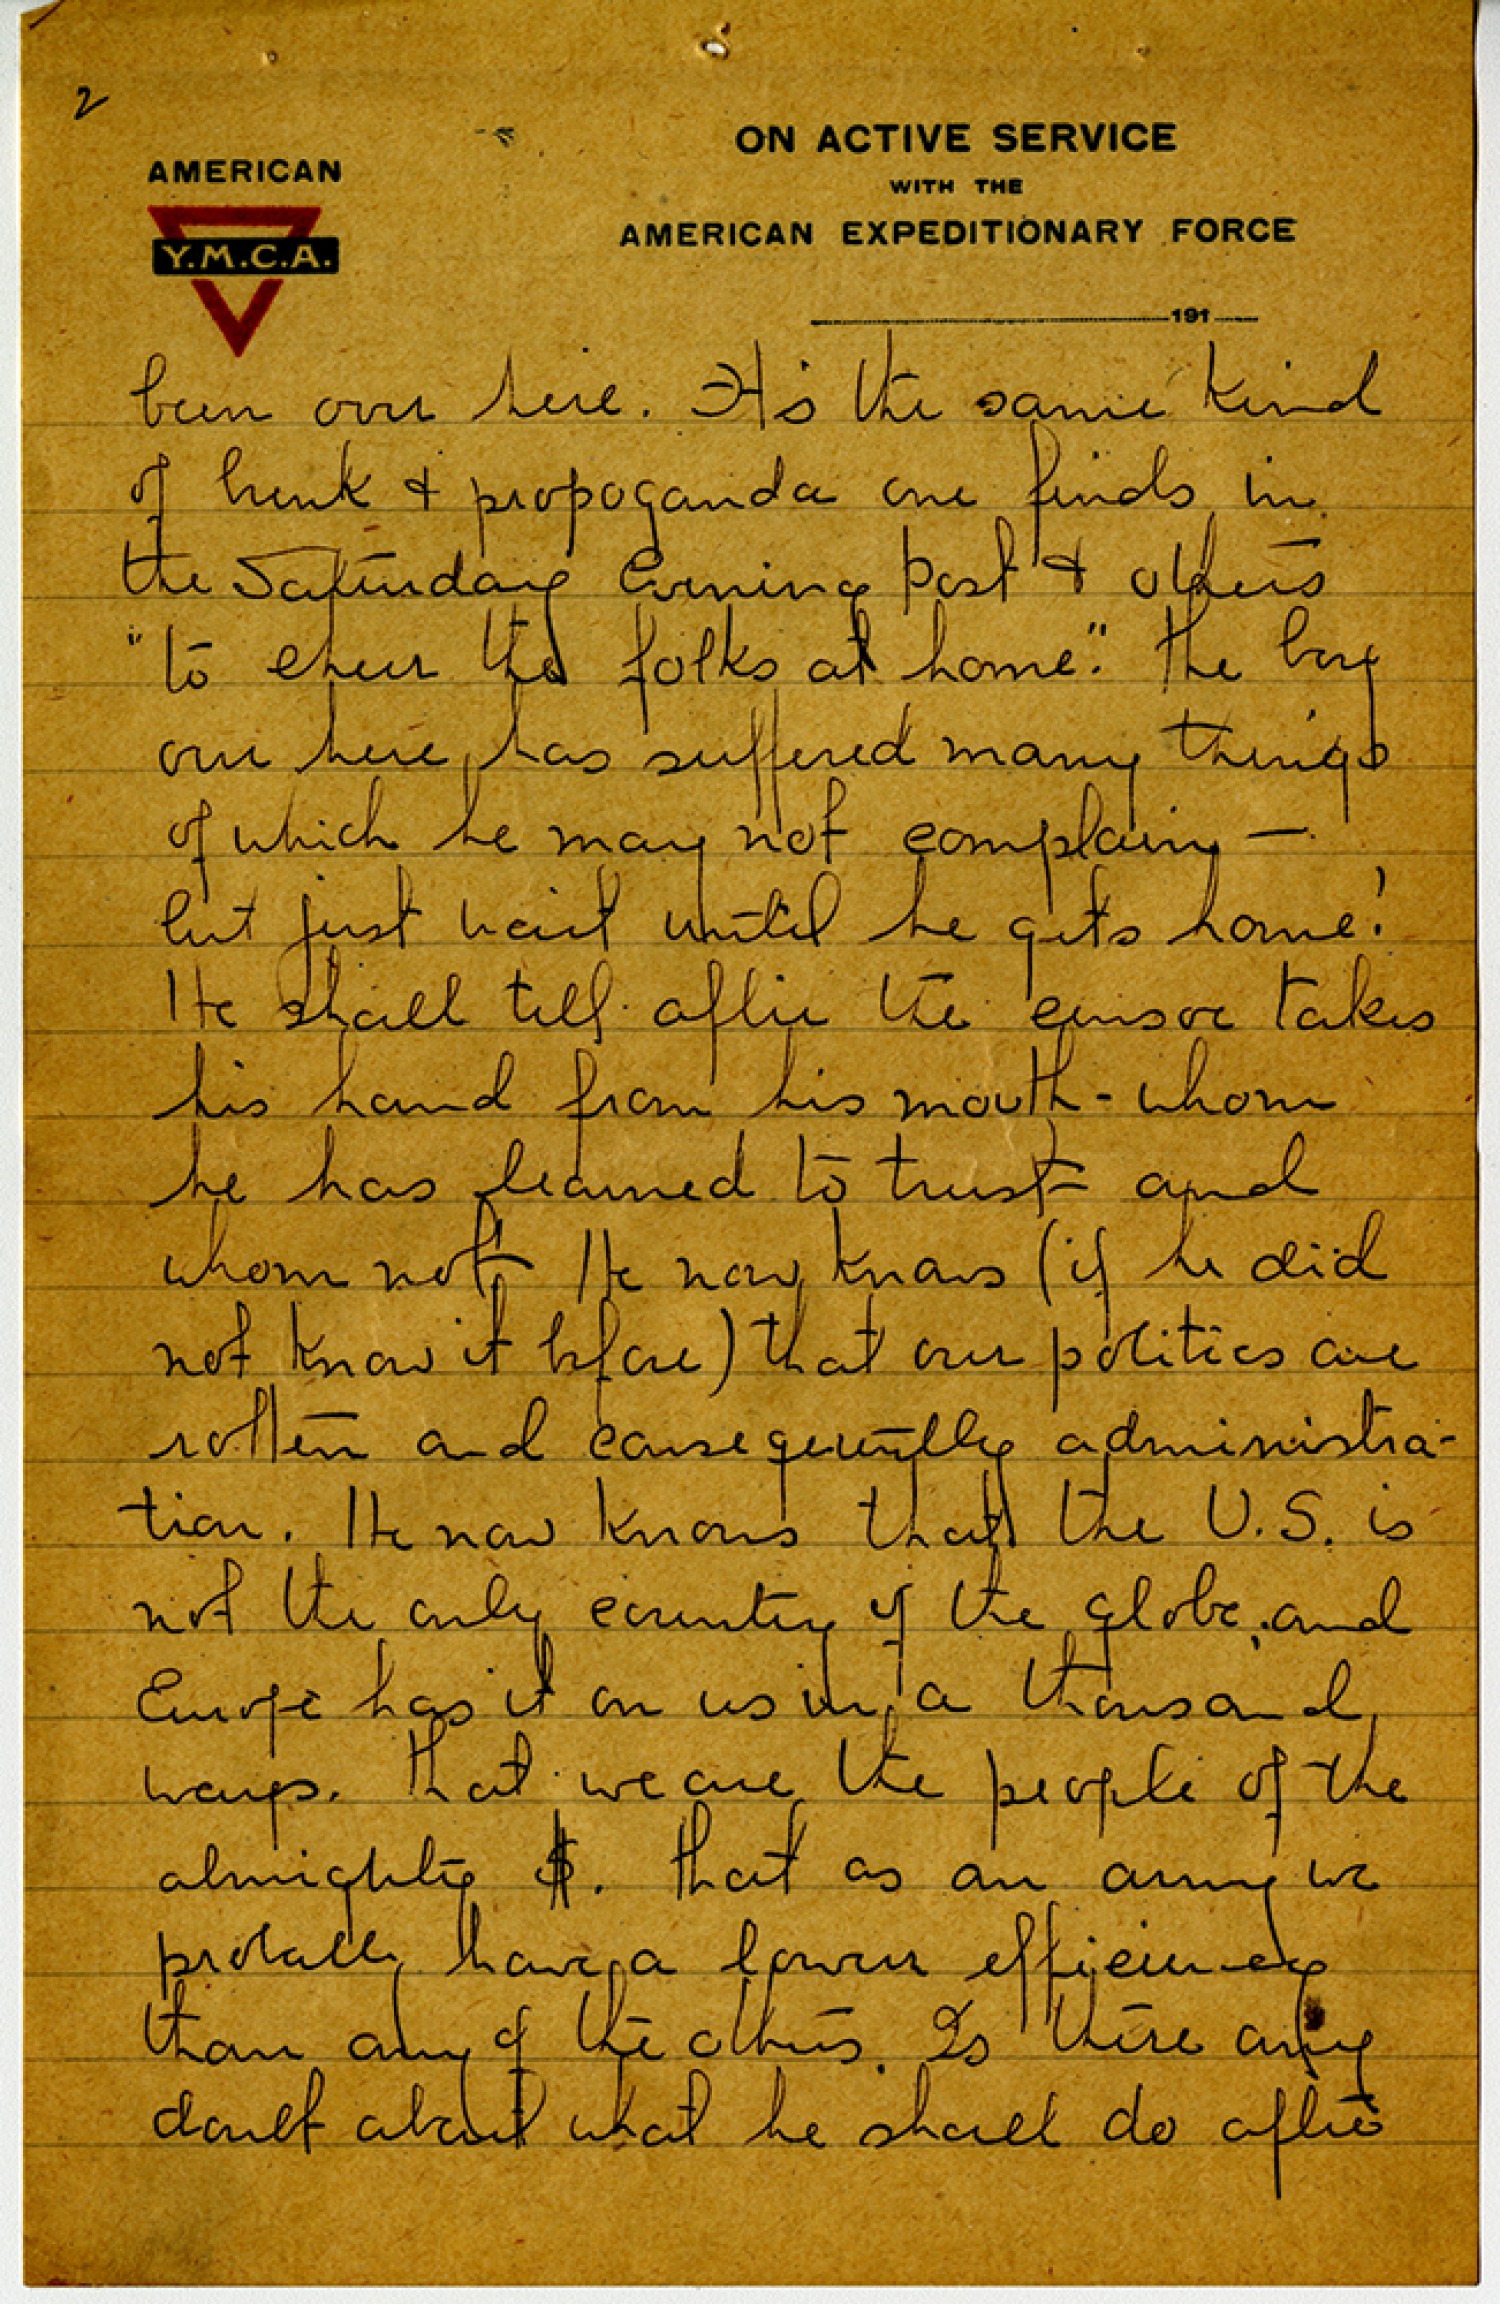 2
AMERICAN
Y.M.C.A.
ON ACTIVE SERVICE
WITH THE
AMERICAN EXPEDITIONARY FORCE
191
been over here. It's the same kind
of bunk & propoganda one finds in
the Saturday Evening Post & others
"to cheer the folks at home." The boy
over here has suffered many things
of which he may not complain —
but just wait until he gets home!
He shall tell after the censor takes
his hand from his mouth - whom
he has learned to trust and
whom not. He now knows (if he did
not know it before) that our politics are
rotten and consequently administra-
tion. He now knows that the U.S. is
not the only country of the globe, and
Europe has it on us in a thousand
ways. That we are the people of the
almighty $. That as an army we
probably have a lower efficiency
than any of the others. Is there any
doubt about what he shall do after